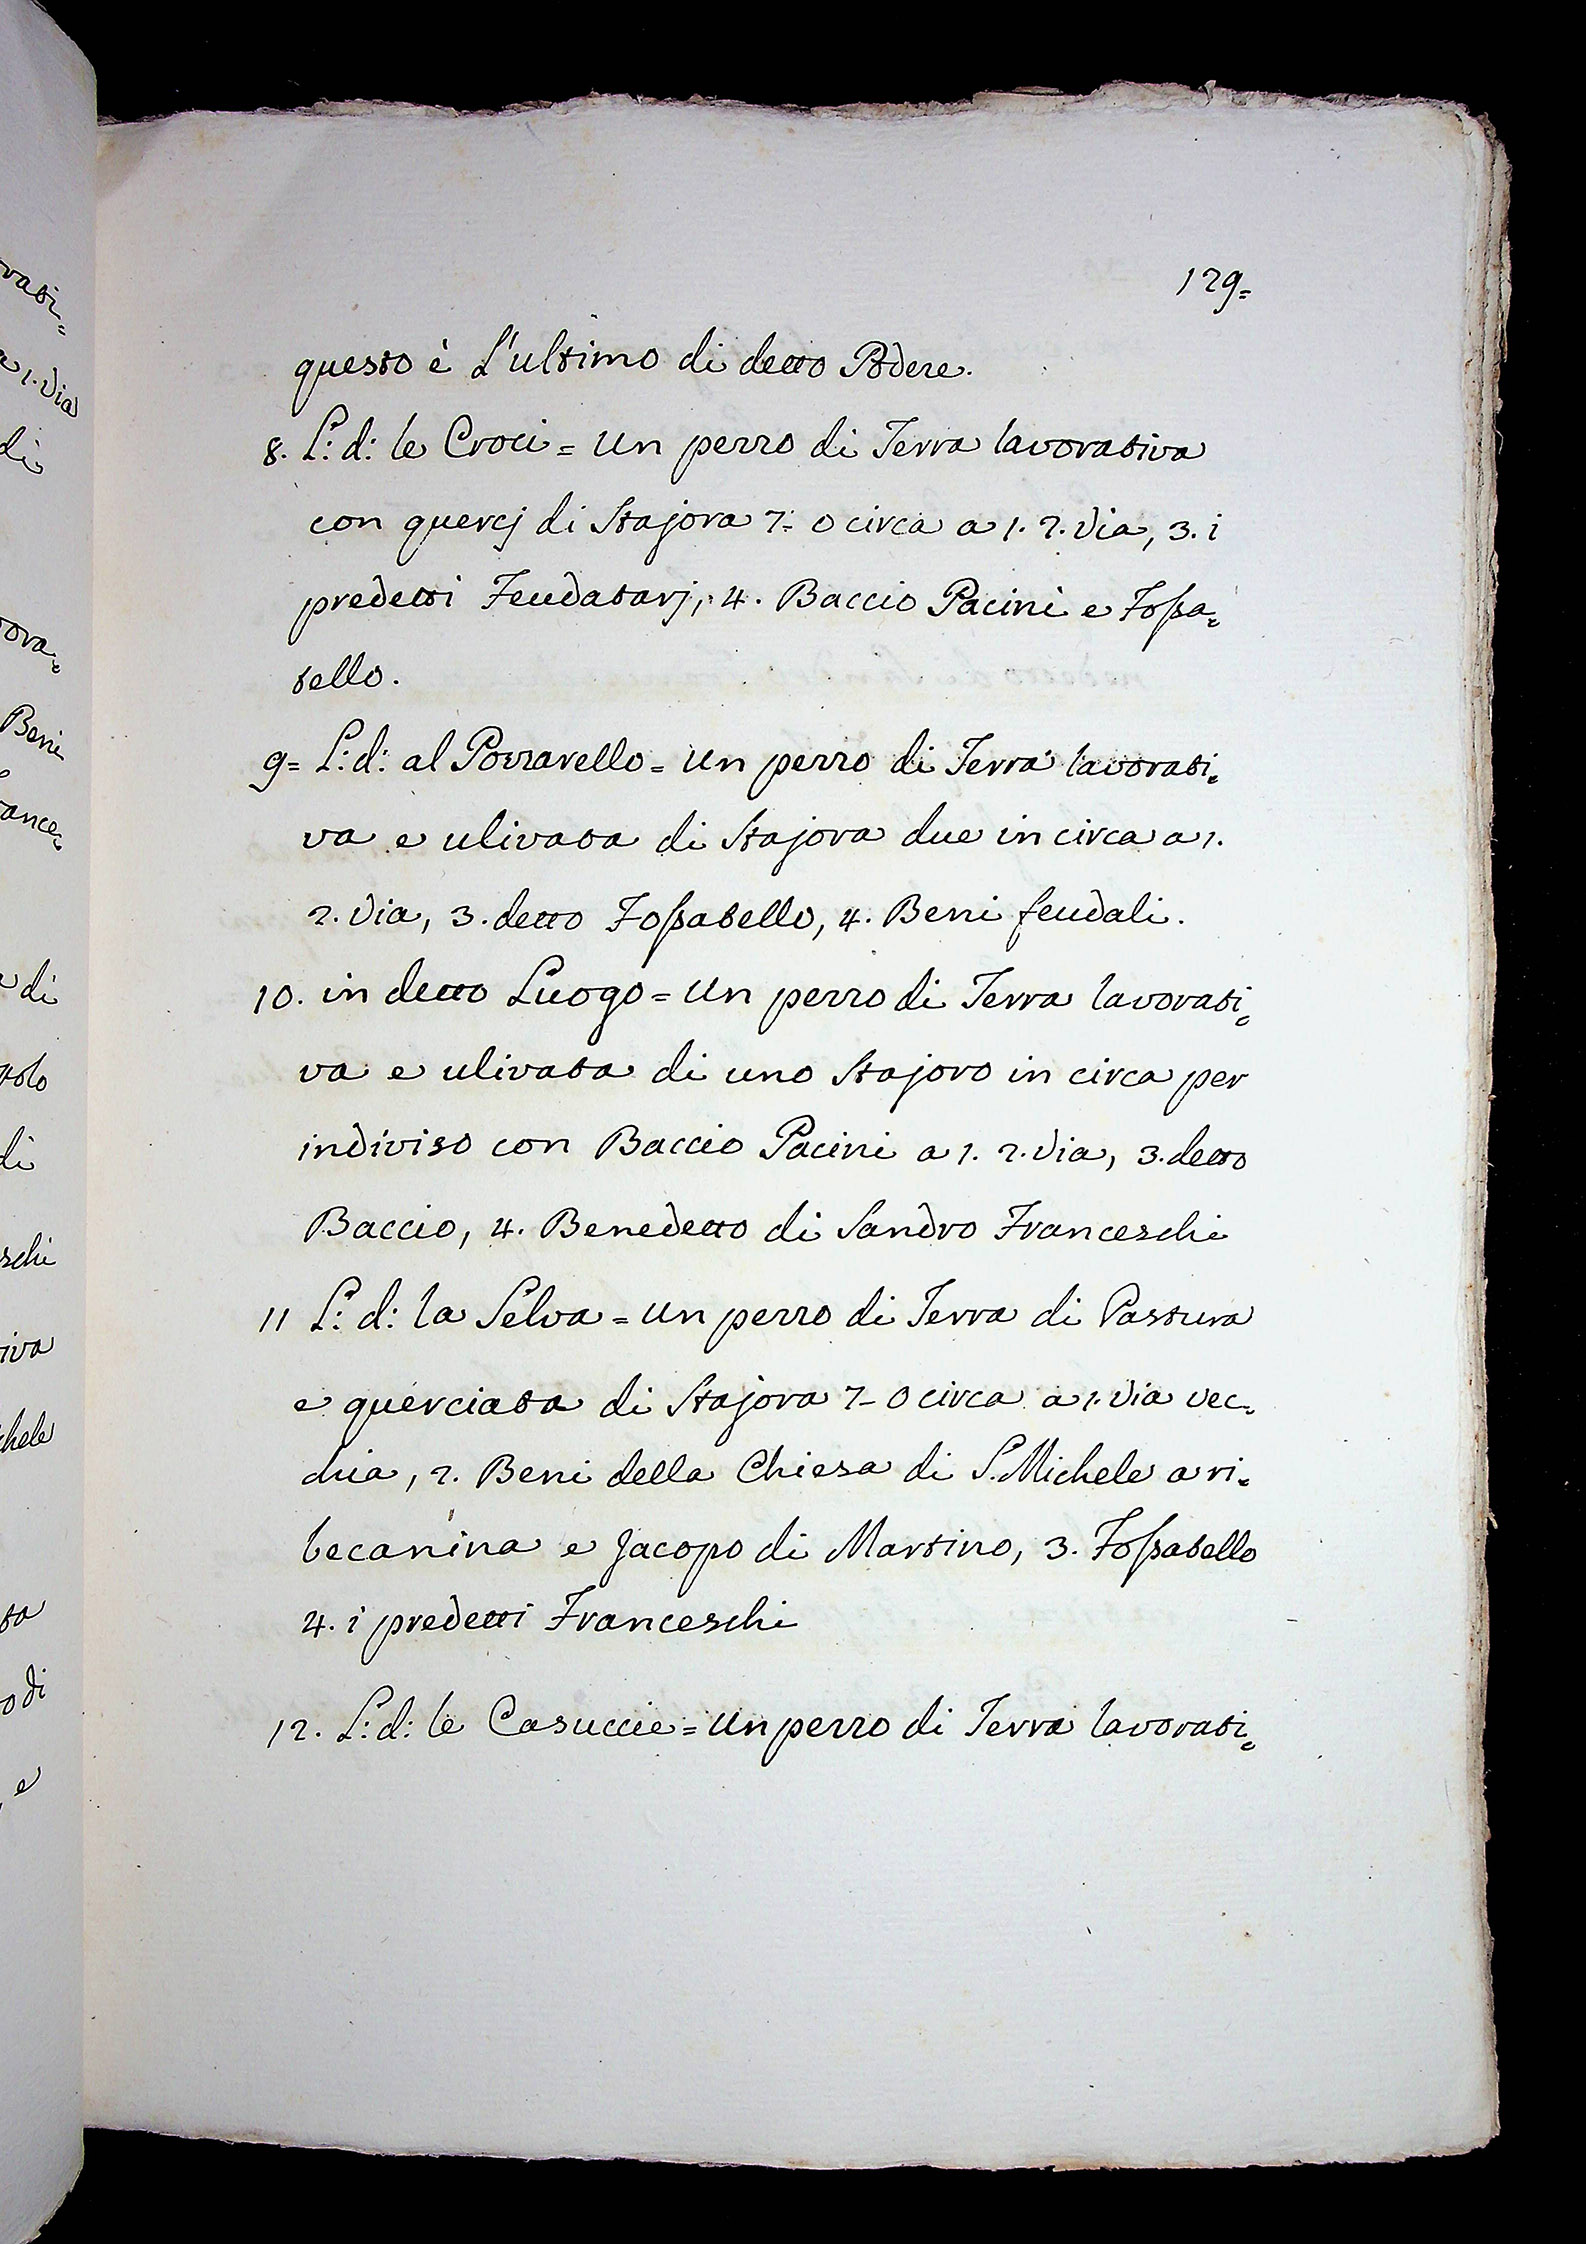 129=
questo è L'ultimo di detto Podere.
8. L: d: le Croci = Un pezzo di Terra lavorativa
con quercj di Stajora 2- 0 circa a 1. 2. Via, 3. i
predetti Feudatarj, 4. Baccio Pacini e Fossa=
tello.
9= L: d: al Pozzarello = Un pezzo di Terra lavorati=
va e ulivata di Stajora due in circa a 1.
2. Via, 3. detto Fossatello, 4. Beni feudali.
10. in detto Luogo = Un pezzo di Terra lavorati=
va e ulivata di uno Stajoro in circa per
indiviso con Baccio Pacini a 1. 2. Via, 3. detto
Baccio, 4. Benedetto di Sandro Franceschi
11 L: d: la Selva = Un pezzo di Terra di Pastura
e querciata di Stajora 2- 0 circa a 1. Via vec=
chia, 2. Beni della Chiesa di S. Michele a ri=
becanina e Jacopo di Martino, 3. Fossatello
4. i predetti Franceschi
12. L: d: le Casuccie = Un pezzo di Terra lavorati=